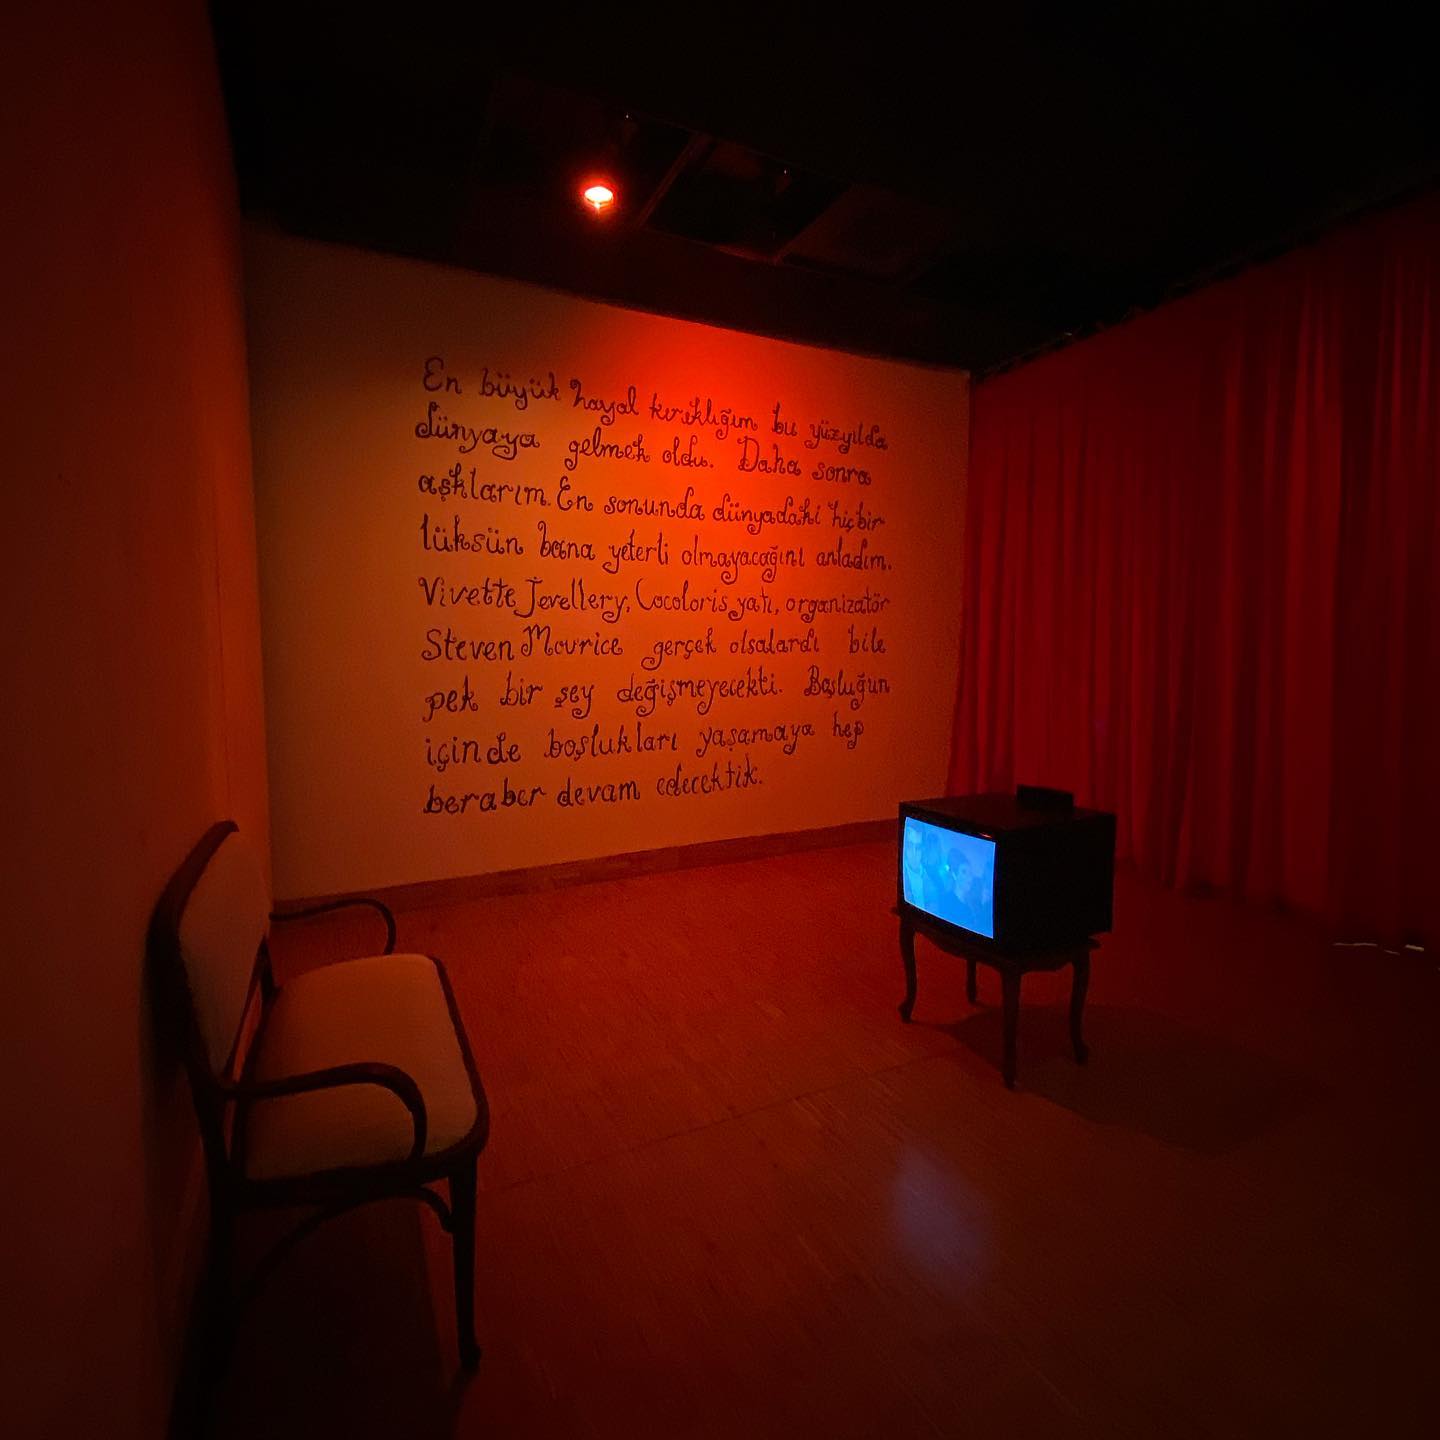 En büyük hayal kırıklığım bu yüzyılda
dünyaya gelmek oldu. Daha sonra
aşklarım. En sonunda dünyadaki hiçbir
lüksün bana yeterli olmayacağını anladım.
Vivette Jevellery, Cocoloris yatı, organizatör
Steven Mourice gerçek olsalardı bile
pek bir şey değişmeyecekti. Boşluğun
içinde boşlukları yaşamaya hep
beraber devam edecektik.